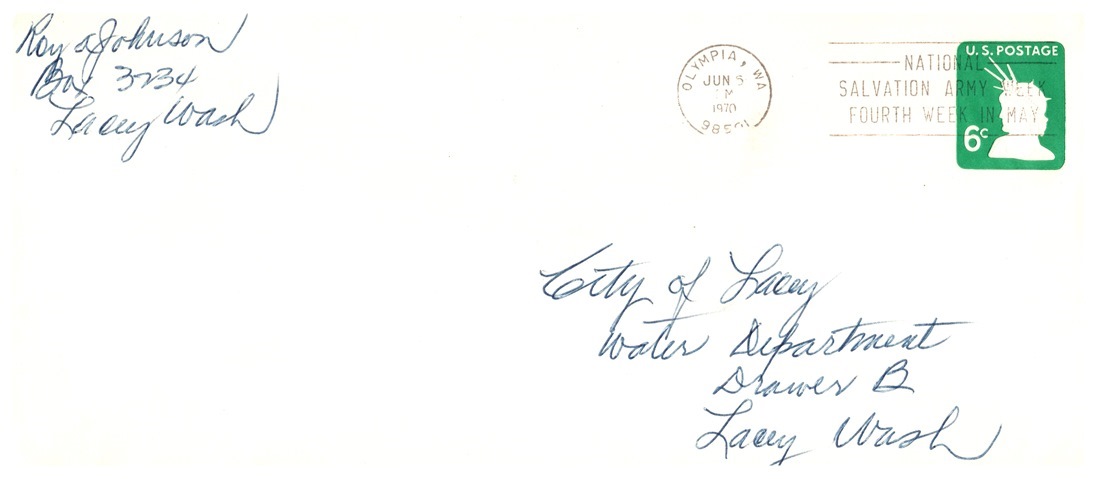 Roy a Johnson
Box 3734
Lacey Wash
OLYMPIA, WA
JUN 5
PM
1970
98501
NATIONAL
SALVATION ARMY WEEK
FOURTH WEEK IN MAY
U.S. POSTAGE
6c
City of Lacey
Water Department
Drawer B
Lacey Wash